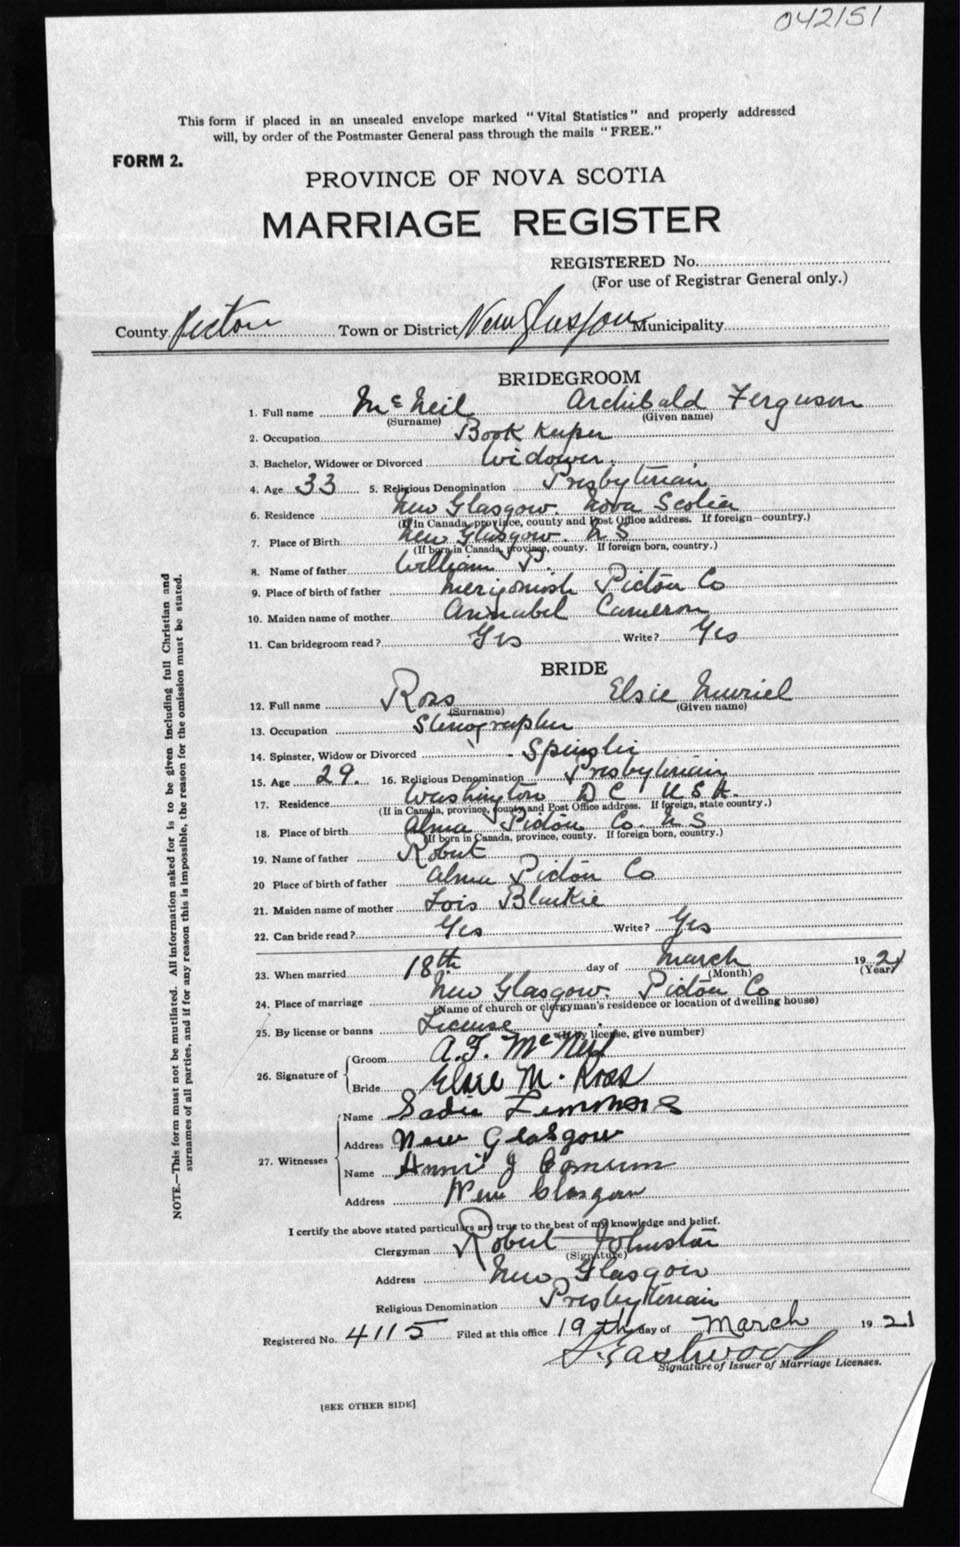 042151
This form if placed in an unsealed envelope marked "Vital Statistics" and properly addressed
will, by order of the Postmaster General pass through the mails "FREE."
FORM 2.
PROVINCE OF NOVA SCOTIA
MARRIAGE REGISTER
REGISTERED No.
(For use of Registrar General only.)
County Pictou Town or District New Glasgow Municipality
BRIDEGROOM
1. Full name McNeil Archibald Ferguson
(Surname) (Given name)
2. Occupation Book Keeper
3. Bachelor, Widower or Divorced Widower
4. Age 33 5. Religious Denomination Presbyterian
6. Residence New Glasgow. Nova Scotia
(If in Canada, province, county and Post Office address. If foreign—country.)
7. Place of Birth New Glasgow. N S
(If born in Canada, province, county. If foreign born, country.)
8. Name of father William P.
9. Place of birth of father Merigomish Pictou Co
10. Maiden name of mother Annabel Cameron
11. Can bridegroom read? Yes Write? Yes
BRIDE
12. Full name Ross Elsie Muriel
(Surname) (Given name)
13. Occupation Stenographer
14. Spinster, Widow or Divorced Spinster
15. Age 29. 16. Religious Denomination Presbyterian
17. Residence Washington D C U.S.A.
(If in Canada, province, county and Post Office address. If foreign, state country.)
18. Place of birth Alma Pictou Co. N S
(If born in Canada, province, county. If foreign born, country.)
19. Name of father Robert
20 Place of birth of father Alma Pictou Co
21. Maiden name of mother Lois Blaikie
22. Can bride read? Yes Write? Yes
23. When married 18th day of March 1921
(Month) (Year)
24. Place of marriage New Glasgow. Pictou Co
(Name of church or clergyman's residence or location of dwelling house)
25. By license or banns License
(If by license, give number)
26. Signature of Groom A.F. McNeil
Bride Elsie M. Ross
27. Witnesses Name Sadie
Address New Glasgow
Name Annie J
Address New Glasgow
I certify the above stated particulars are true to the best of my knowledge and belief.
Clergyman Robert Johnston
(Signature)
Address New Glasgow
Religious Denomination Presbyterian
Registered No. 4115 Filed at this office 19th day of March 1921
S. Eastwood
Signature of Issuer of Marriage Licenses.
[SEE OTHER SIDE]
NOTE.—This form must not be mutilated. All information asked for is to be given including full Christian and
surnames of all parties, and if for any reason this is impossible, the reason for the omission must be stated.